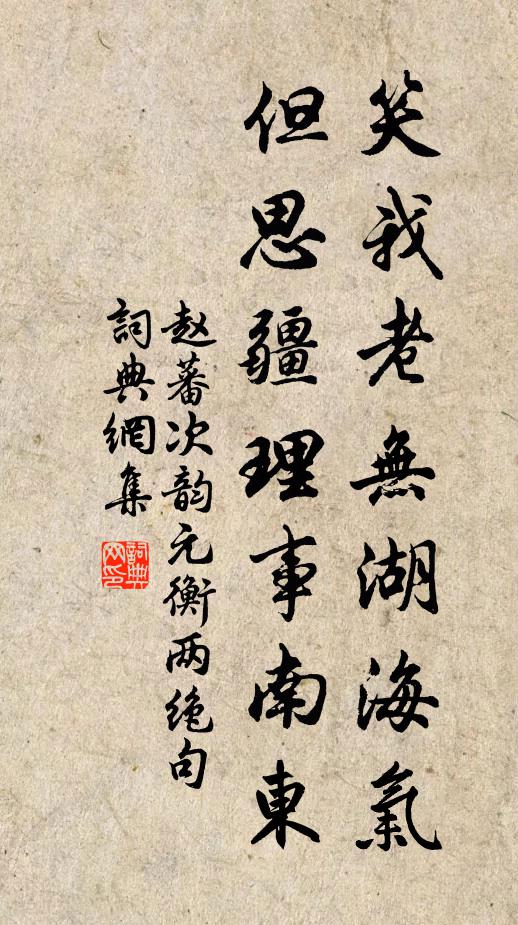 笑我老無湖海氣
但思疆理事南東
赵蕃次韵元衡两绝句
詞典網集
詞典网印